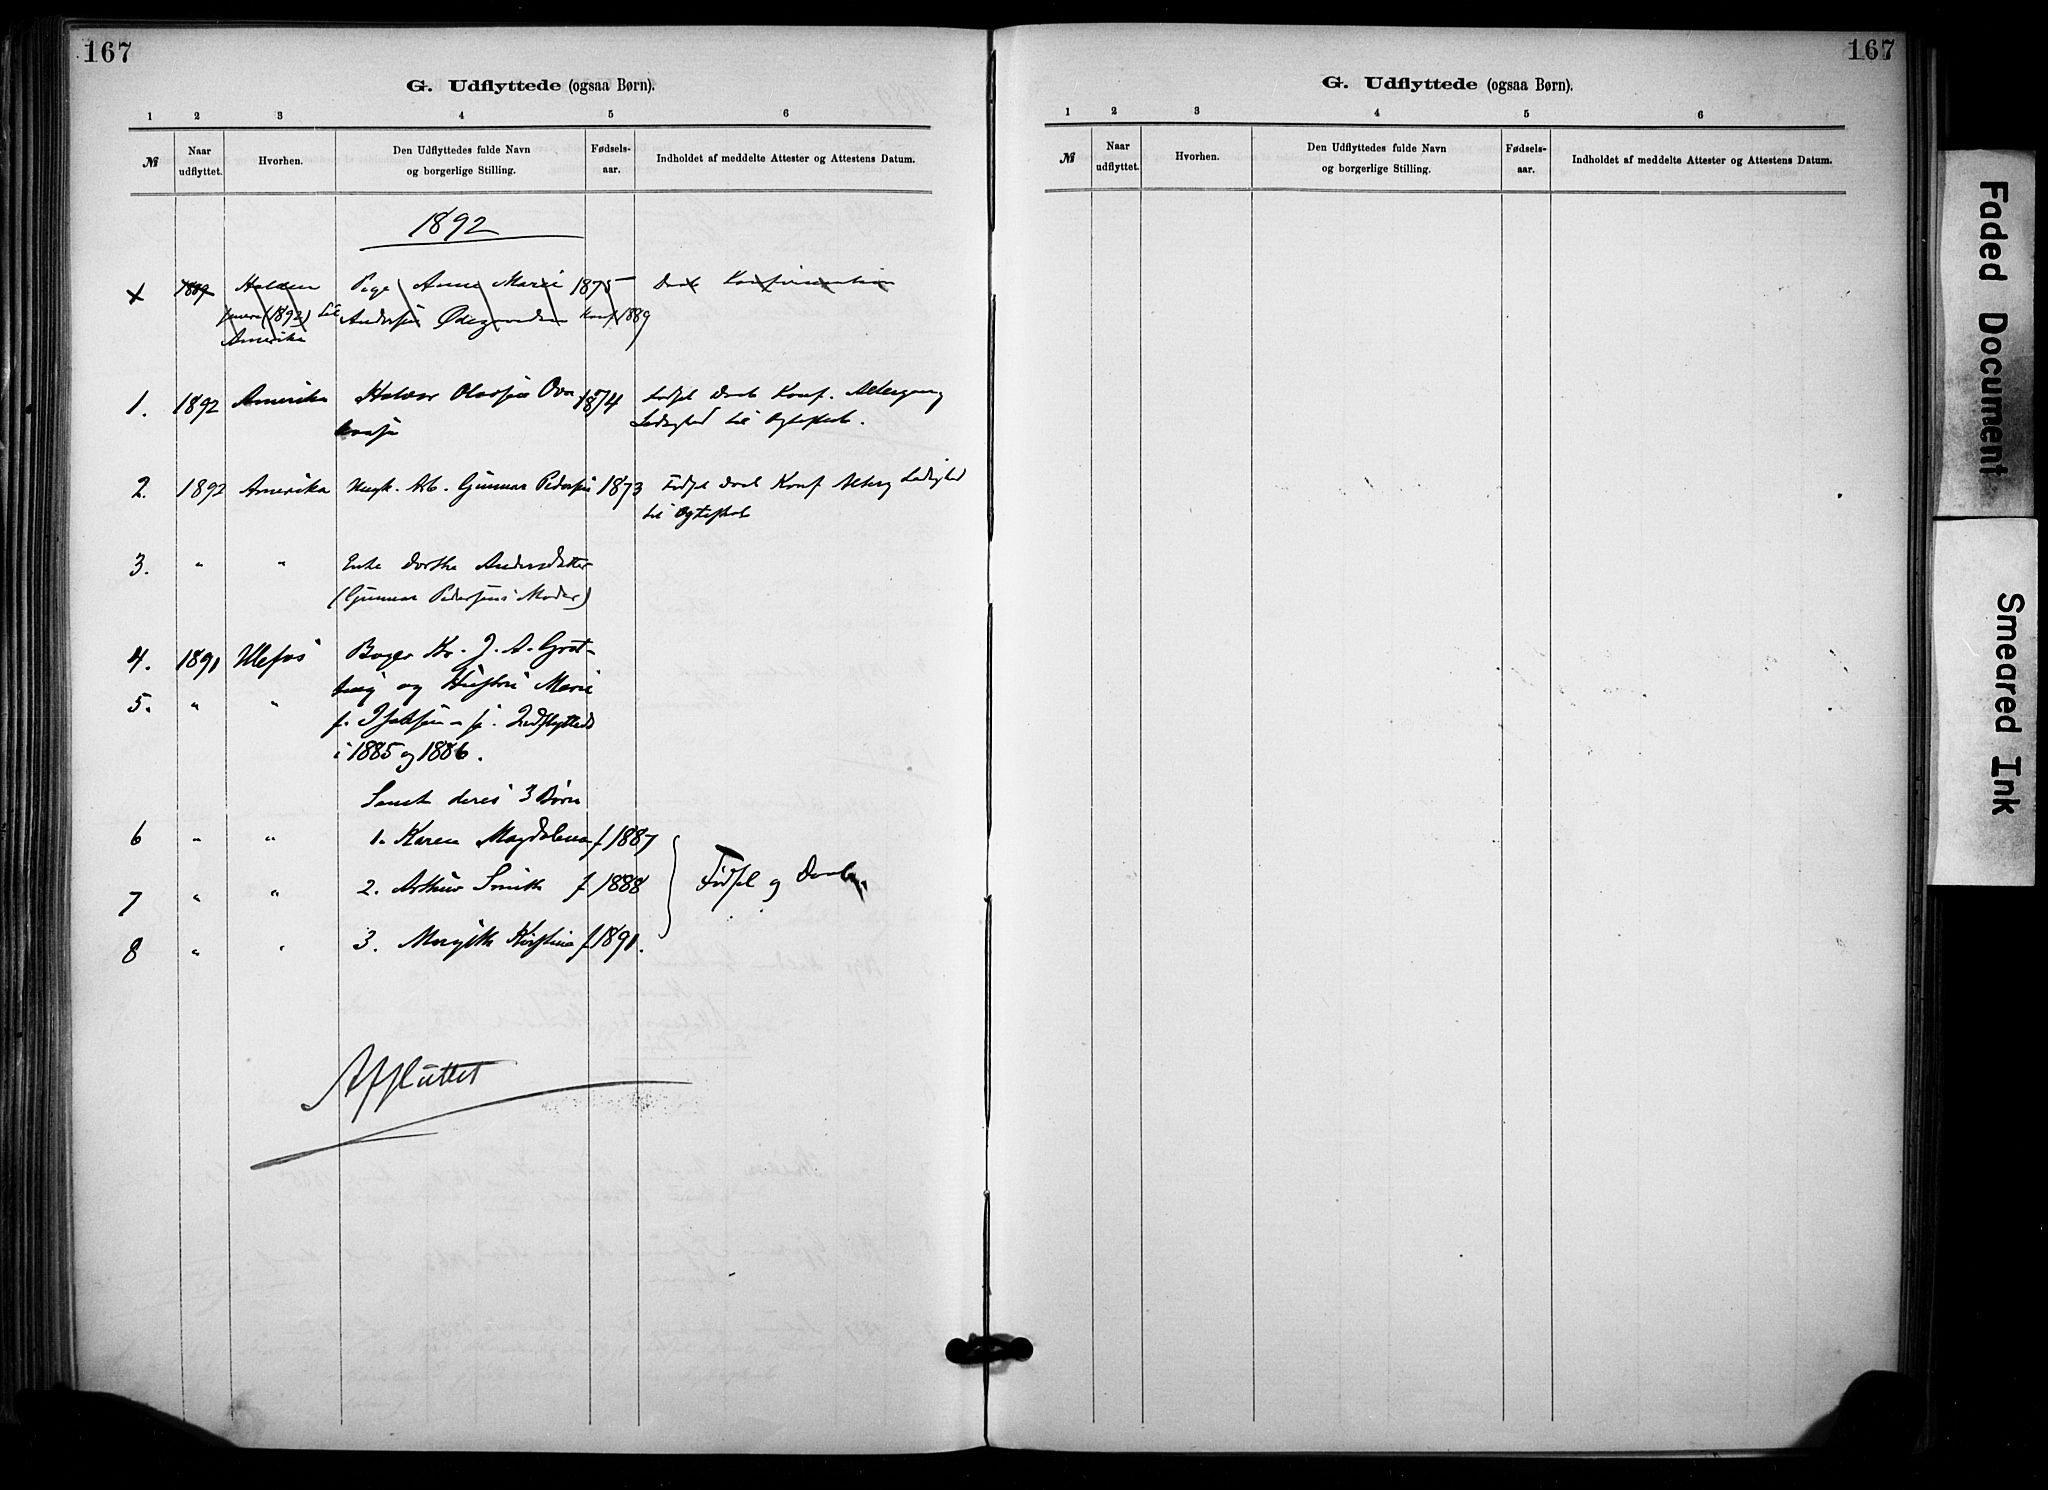 167
G. Udflyttede (ogsaa Børn).
1 2 3 4 5 6
№ Naar udflyttet. Hvorhen. Den Udflyttedes fulde Navn og borgerlige Stilling. Fødsels-aar. Indholdet af meddelte Attester og Attestens Datum.
1892
x 1889 Holden Pige Anne Marie 1875 Daab Konfirmation
senere (1892) til Andersen Ødegaarden Konf 1889
Amerika
1. 1892 Amerika Halvor Olavsen 1874 Fødsel Daab Konf. Altergang
Ledighed til Ægteskab.
2. 1892 Amerika Ungk. Arb. Gunnar Pedersen 1873 Fødsel Daab Konf Alterg Ledighed
til Ægteskab
3. " " Enke Dorthe Andersdatter
(Gunnar Pedersens Moder)
4. 1891 Ulefos Bager Hr. J. A. Grot-
5. " " berg og Hustru Marie
f. Isaksen - se Indflyttede
i 1885 og 1886.
Samt deres 3 Børn
6 " " 1. Karen Magdalena f 1887
7 " " 2. Arthur Smith f 1888 Fødsel og Daab
8 " " 3. Margith Kirstine f 1891.
Afsluttet
167
G. Udflyttede (ogsaa Børn).
1 2 3 4 5 6
№ Naar udflyttet. Hvorhen. Den Udflyttedes fulde Navn og borgerlige Stilling. Fødsels-aar. Indholdet af meddelte Attester og Attestens Datum.
Faded Document
Smeared Ink